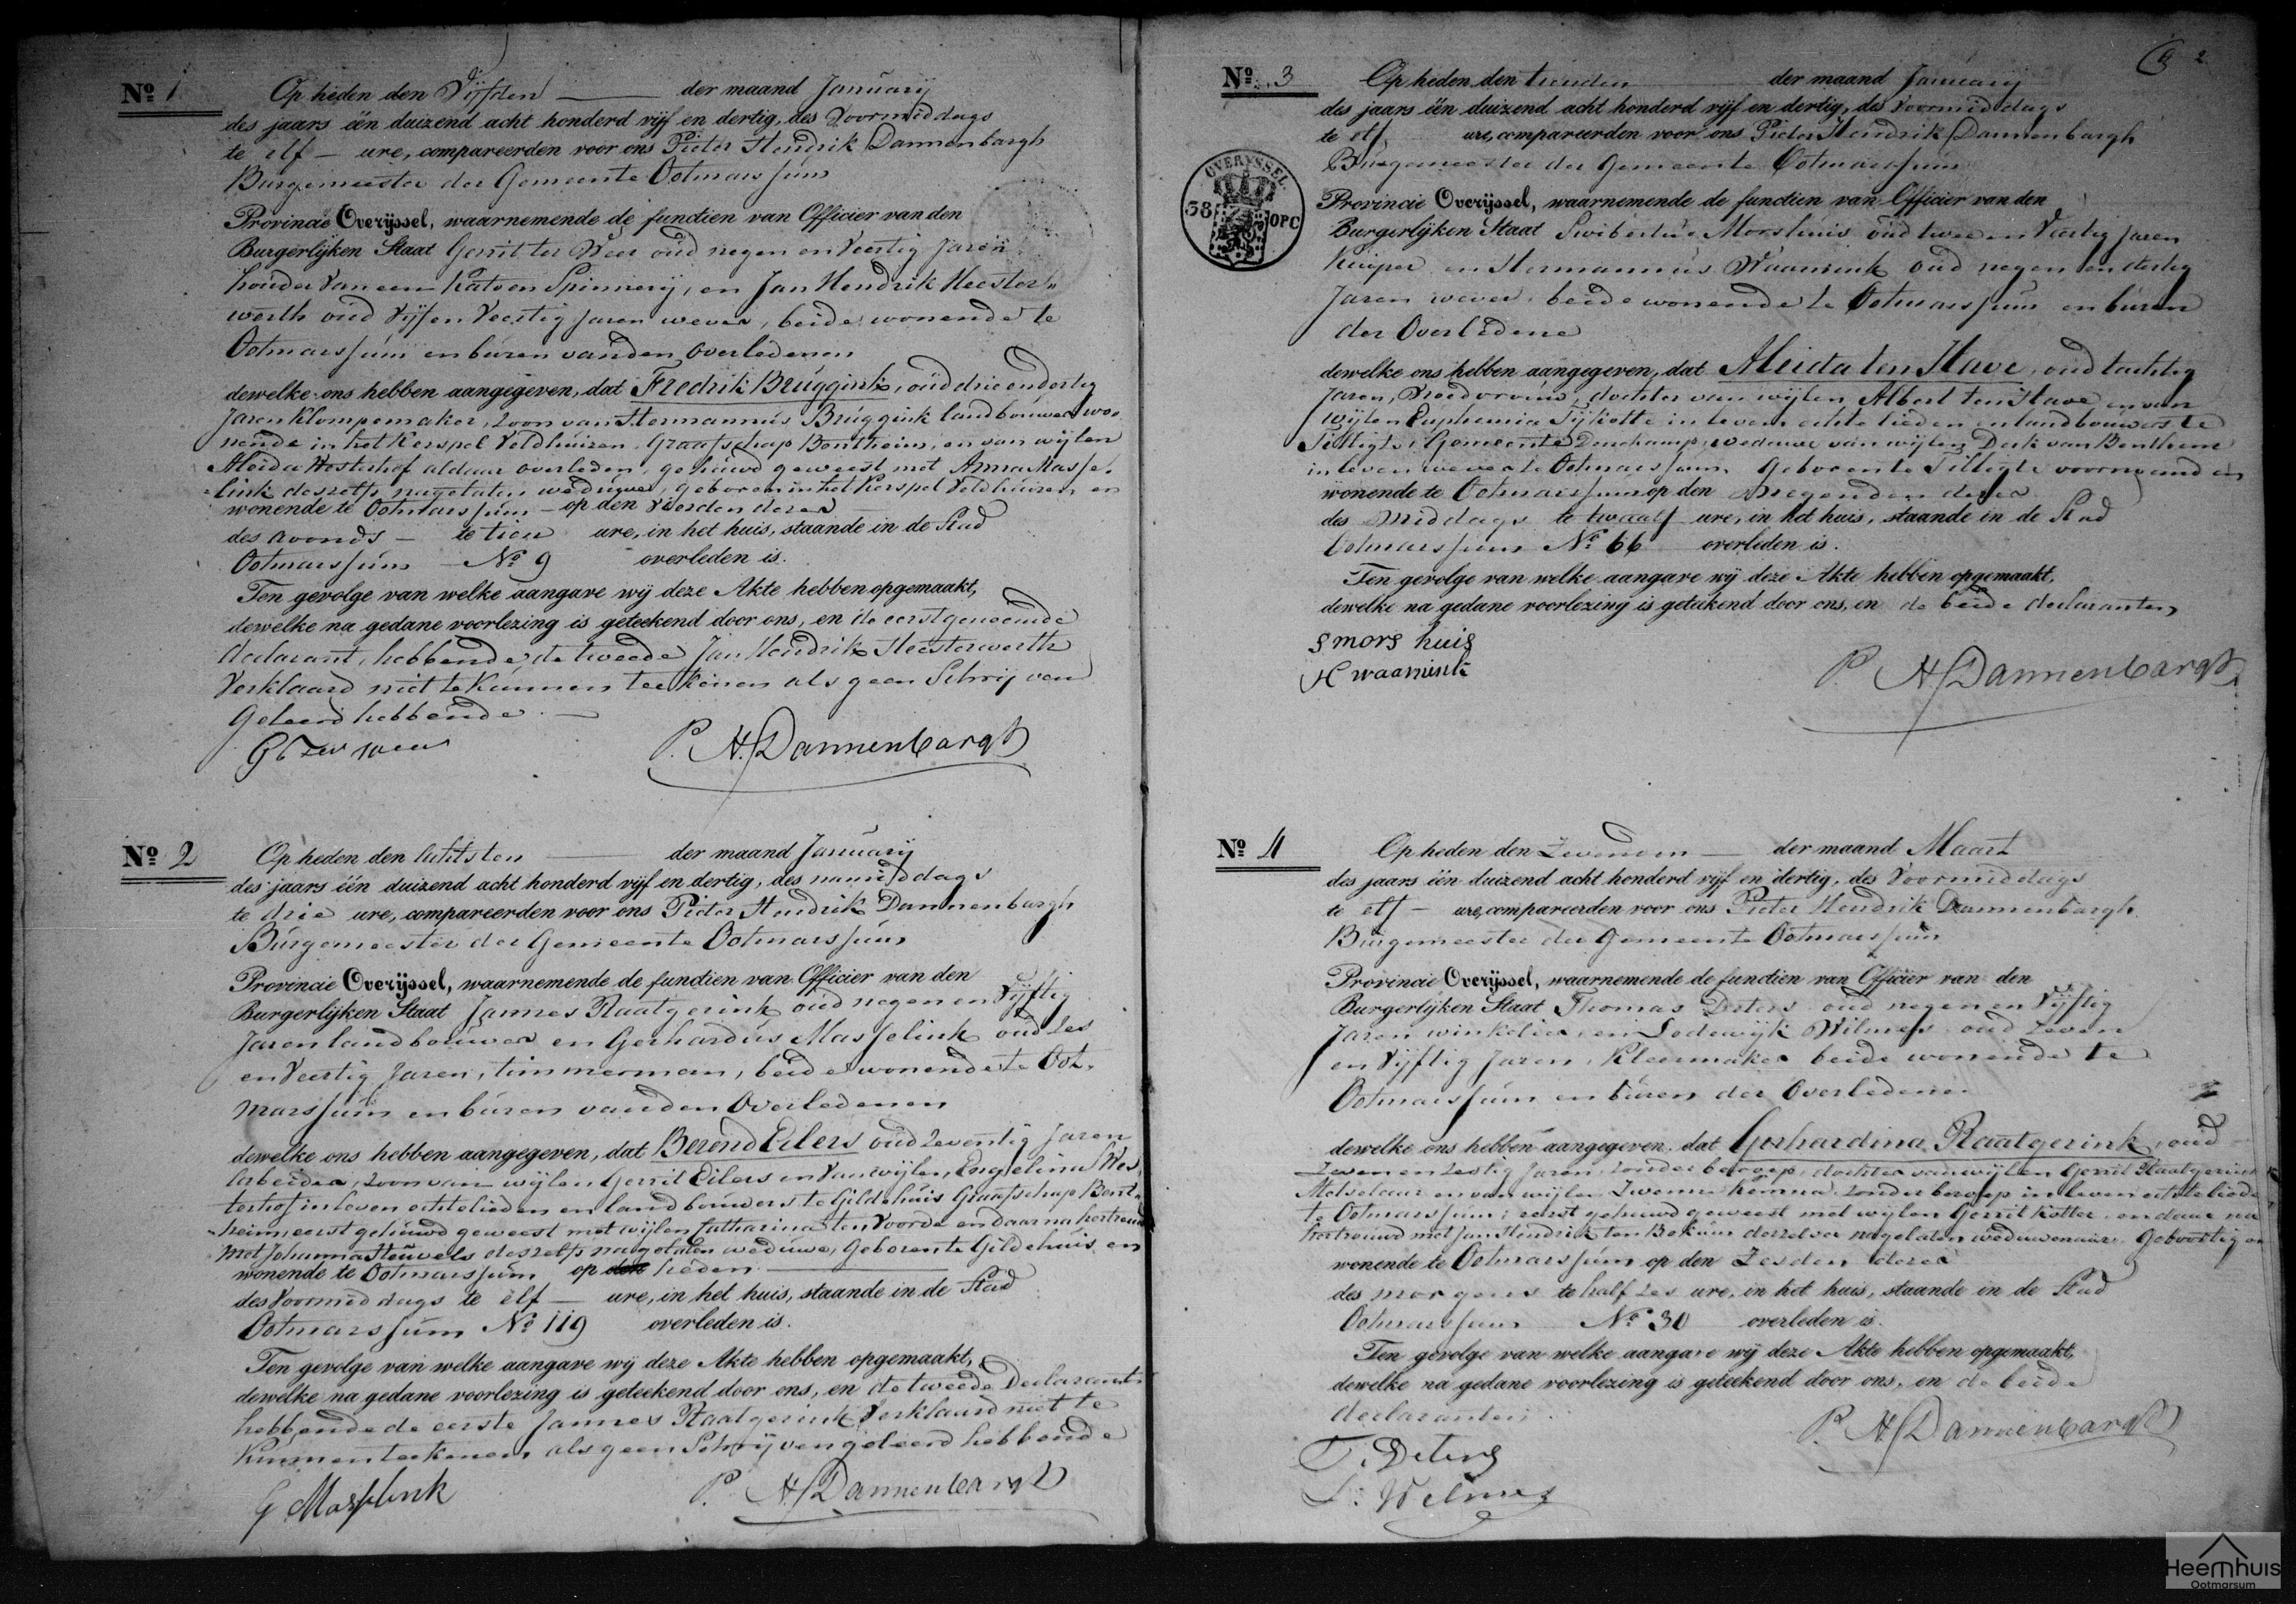 Nº 1
Op heden den Vijfden der maand Januarij
des jaars één duizend acht honderd vijf en dertig, des Voormiddags
te elf ure, compareerden voor ons Pieter Hendrik Dannenbargh
Burgemeester der Gemeente Ootmarssum
Provincie Overijssel, waarnemende de functien van Officier van den
Burgerlijken Staat Gerrit ter Weer oud negen en Veertig Jaren
houder van een Katoen Spinnerij, en Jan Hendrik Heester„
werth oud Vijf en Veertig Jaren wever, beide wonende te
Ootmarssum en buren van den Overledenen
dewelke ons hebben aangegeven, dat Fredrik Bruggink, oud drie en dertig
Jaren Klompemaker, zoon van Hermannus Bruggink landbouwer wo„
nende in het Kerspel Veldhuizen, Graafschap Bentheim, en van wijlen
Aleida Westerhof aldaar overleden, gehuwd geweest met Anna Masse„
link deszelfs nagelaten weduwe, geboren in het Kerspel Veldhuizen en
wonende te Ootmarssum op den Vierden dezer
des avonds te tien ure, in het huis, staande in de Stad
Ootmarssum Nº 9 overleden is.
Ten gevolge van welke aangave wij deze Akte hebben opgemaakt,
dewelke na gedane voorlezing is geteekend door ons, en de eerstgenoemde
declarant, hebbende de tweede Jan Hendrik Heesterwerth
Verklaard niet te Kunnen teekenen als geen Schrijven
Geleerd hebbende.
P. H. Dannenbargh
Nº 2
Op heden den achtsten der maand Januarij
des jaars één duizend acht honderd vijf en dertig, des namiddags
te drie ure, compareerden voor ons Pieter Hendrik Dannenbargh
Burgemeester der Gemeente Ootmarssum
Provincie Overijssel, waarnemende de functien van Officier van den
Burgerlijken Staat Jannes Raatgerink oud negen en Vijftig
Jaren landbouwer en Gerhardus Masselink oud Zes
en Veertig Jaren, timmerman, beide wonende te Oot„
marssum en buren van den Overledenen
dewelke ons hebben aangegeven, dat Berend Eilers oud Zeventig Jaren
Arbeider, zoon van wijlen Gerrit Eilers en van wijlen Engelina Wes„
terhof in leven echtelieden en landbouwers te Gildehuis Graafschap Bent„
heim, eerst gehuwd geweest met wijlen Catharina ten Voorde en daarna hertrouwd
met Johanna Heuvels deszelfs nagelaten weduwe, Geboren te Gildehuis en
wonende te Ootmarssum op den heden
des Voormiddags te elf ure, in het huis, staande in de Stad
Ootmarssum Nº 119 overleden is.
Ten gevolge van welke aangave wij deze Akte hebben opgemaakt,
dewelke na gedane voorlezing is geteekend door ons, en de tweede Declarant
hebbende de eerste Jannes Raatgerink Verklaard niet te
Kunnen teekenen als geen Schrijven geleerd hebbende
G Masselink P. H. Dannenbargh
2
Nº 3
Op heden den tienden der maand Januarij
des jaars één duizend acht honderd vijf en dertig, des Voormiddags
te elf ure, compareerden voor ons Pieter Hendrik Dannenbargh
Burgemeester der Gemeente Ootmarssum
OVERYSSEL.
38 OPC
Provincie Overijssel, waarnemende de functien van Officier van den
Burgerlijken Staat Swibertus Morshuis oud twee en Veertig Jaren
Kuiper en Hermannus Waamink oud negen en dertig
Jaren wever, beide wonende te Ootmarssum en buren
der Overledene
dewelke ons hebben aangegeven, dat Aleida ten Have, oud tachtig
Jaren, Vroedvrouw, dochter van wijlen Albert ten Have en van
wijlen Euphemia in leven echtelieden en landbouwers te
Tilligte, Gemeente Denekamp, weduwe van wijlen Derk van Benthem
in leven wever te Ootmarssum Geboren te Tilligte voornoemd en
wonende te Ootmarssum op den negenden dezer
des middags te twaalf ure, in het huis, staande in de Stad
Ootmarssum Nº 66 overleden is.
Ten gevolge van welke aangave wij deze Akte hebben opgemaakt,
dewelke na gedane voorlezing is geteekend door ons, en de beide declaranten
S mors huis
H waamink
P. H. Dannenbargh
Nº 4
Op heden den Zevenden der maand Maart
des jaars één duizend acht honderd vijf en dertig, des Voormiddags
te elf ure, compareerden voor ons Pieter Hendrik Dannenbargh
Burgemeester der Gemeente Ootmarssum
Provincie Overijssel, waarnemende de functien van Officier van den
Burgerlijken Staat Thomas Deters oud negen en Vijftig
Jaren winkelier, en Lodewijk Wilmes oud Zeven
en Vijftig Jaren, Kleermaker beide wonende te
Ootmarssum en buren der Overledene
dewelke ons hebben aangegeven, dat Gerhardina Raatgerink, oud
Zeven en Zestig Jaren, zonder beroep, dochter van wijlen Gerrit Raatgerink
Metselaar en van wijlen Zwenne Kemna zonder beroep in leven echteliede
te Ootmarssum; eerst gehuwd geweest met wijlen Gerrit Kotter en daar na
hertrouwd met Jan Hendrik ten Bokum derzelver nagelaten weduwenaar. Geboortig en
wonende te Ootmarssum op den Zesden dezer
des morgens te half zes ure, in het huis, staande in de Stad
Ootmarssum Nº 30 overleden is.
Ten gevolge van welke aangave wij deze Akte hebben opgemaakt,
dewelke na gedane voorlezing is geteekend door ons, en de beide
declaranten.
P. H. Dannenbargh
T. Deters
L. Wilmes
Heemhuis
Ootmarsum